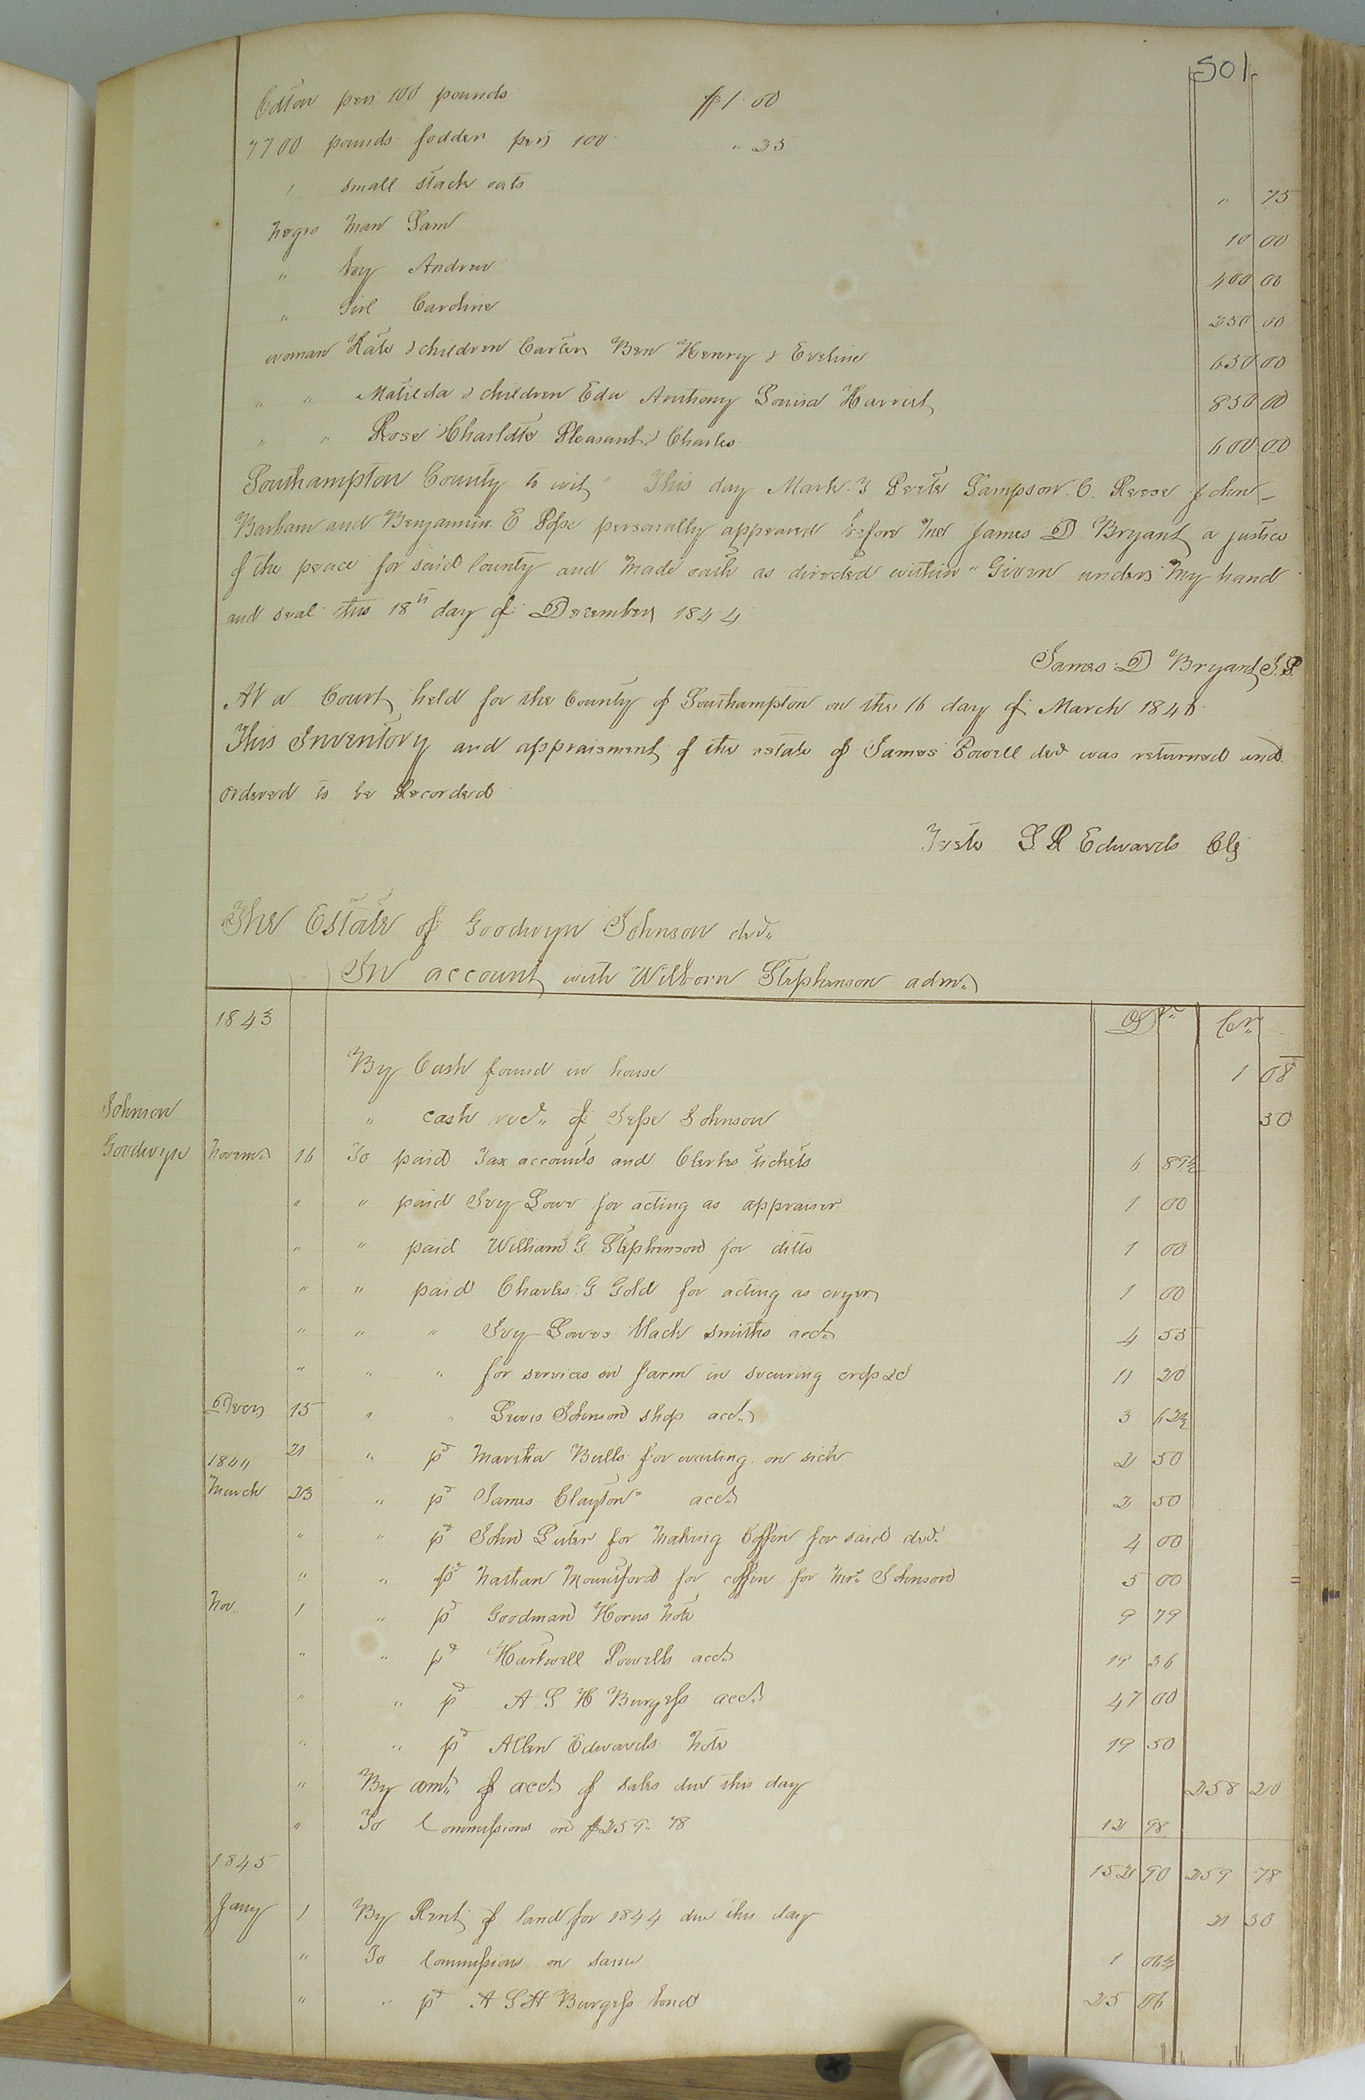 501
Cotton per 100 pounds $1.00
7700 pounds fodder per 100 " 35
1 small stack oats " 75
Negro Man Sam 10 00
" boy Andrew 400 00
" Girl Caroline 250 00
woman Kate & children Carter Ben Henry & Eveline 650 00
" " Matilda & children Edu Anthony Louisa Harriet 850 00
" " Rose Charlotte Pleasant & Charles 600 00
Southampton County to wit" This day Mark. J Peete Sampson. C. Reese John
Barham and Benjamin. E Pope personally appeared before me James D Bryant a justice
of the peace for said County and made oath as directed within" Given under my hand
and seal this 18th day of December 1844
James D Bryant J.P
At a Court held for the County of Southampton on the 16 day of March 1846
This Inventory and appraisment of the estate of James Powell decd was returned and
ordered to be Recorded
Teste L R Edwards Clk
The Estate of Goodwyn Johnson decd.
In account with Wilborn Stephenson admr.
1843 Dr. Cr.
By Cash found in house 1 08
Johnson " cash recd. of Jesse Johnson 50
Goodwyn Novemr 16 To paid Tax accounts and Clerks tickets 6 89½
" " paid Ivy Lowe for acting as appraiser 1 00
" " paid William G. Stephenson for ditto 1 00
" " paid Charles G Gold for acting as cryer 1 00
" " " Ivy Lowes black smiths acct. 4 55
" " " for services on farm in securing crop &c 11 20
Decer 15 " " Lewis Johnson shop acct. 3 62½
21 " pd Martha Bulls for waiting on sick 2 50
1844
March 23 " pd James Clayton" acct 2 50
" " pd John Luter for making Coffin for said decd. 4 00
" " pd Nathan Mountford for coffin for Mrs. Johnson 5 00
Nov. 1 " pd Goodman Hornes Note 9 79
" " pd Hartwell Powells acct 19 36
" " pd A S H Burgess acct. 47 00
" " pd Allen Edwards Note 19 50
" By amt. of acct. of sales due this day 258 20
" To Commissions on $259.78 12 98
1845 152 90 259 78
Jany 1 By Rent of land for 1844 due this day 21 30
" To Commissions on same 1 06½
" " pd A S H Burgess bond 25 06